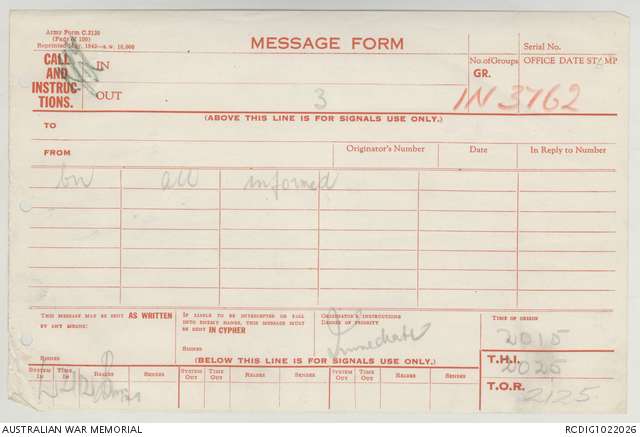 Army Form C.2136
(Pads of 100)
MESSAGE FORM
Serial No.
CALL
AND
INSTRUC-
TIONS.
IN
OUT
3
No. of Groups
GR.
OFFICE DATE STAMP
IN 3762
(ABOVE THIS LINE IS FOR SIGNALS USE ONLY.)
TO
FROM
Originator's Number
Date
In Reply to Number
bn all informed
THIS MESSAGE MAY BE SENT AS WRITTEN
BY ANY MEANS:
SIGNED
IF LIABLE TO BE INTERCEPTED OR FALL
INTO ENEMY HANDS, THIS MESSAGE MUST
BE SENT IN CYPHER
SIGNED
ORIGINATOR'S INSTRUCTIONS
DEGREE OF PRIORITY
Immediate
TIME OF ORIGIN
2015
T.H.I.
2025
T.O.R.
2125
(BELOW THIS LINE IS FOR SIGNALS USE ONLY.)
SYSTEM IN
TIME IN
READER
SENDER
SYSTEM OUT
TIME OUT
READER
SENDER
SYSTEM OUT
TIME OUT
READER
SENDER
AUSTRALIAN WAR MEMORIAL
RCDIG1022026